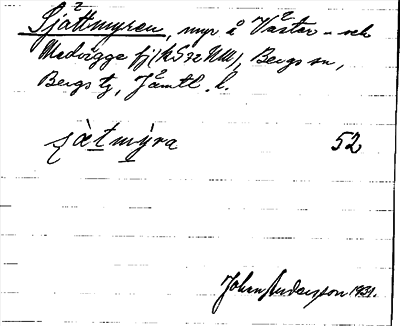 Sjättmyren, myr å Väster- och
Medvigge fj (kS32NM), Bergs sn,
Bergs tg, Jämtl. l.
sjàtmỳra 52
Johan Andersson 1931.